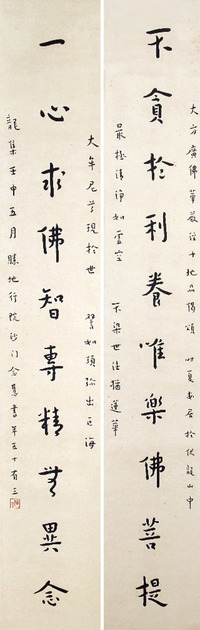 大方廣佛華嚴經十地品偈頌 時夏安居於伏龍山中
不貪於利養唯樂佛菩提
最極清淨如虛空 不染世法猶蓮華
大牟尼尊現於世 譬如須彌出巨海
一心求佛智專精無異念
龍集壬申五月勝地行院沙門含慧書年五十有三